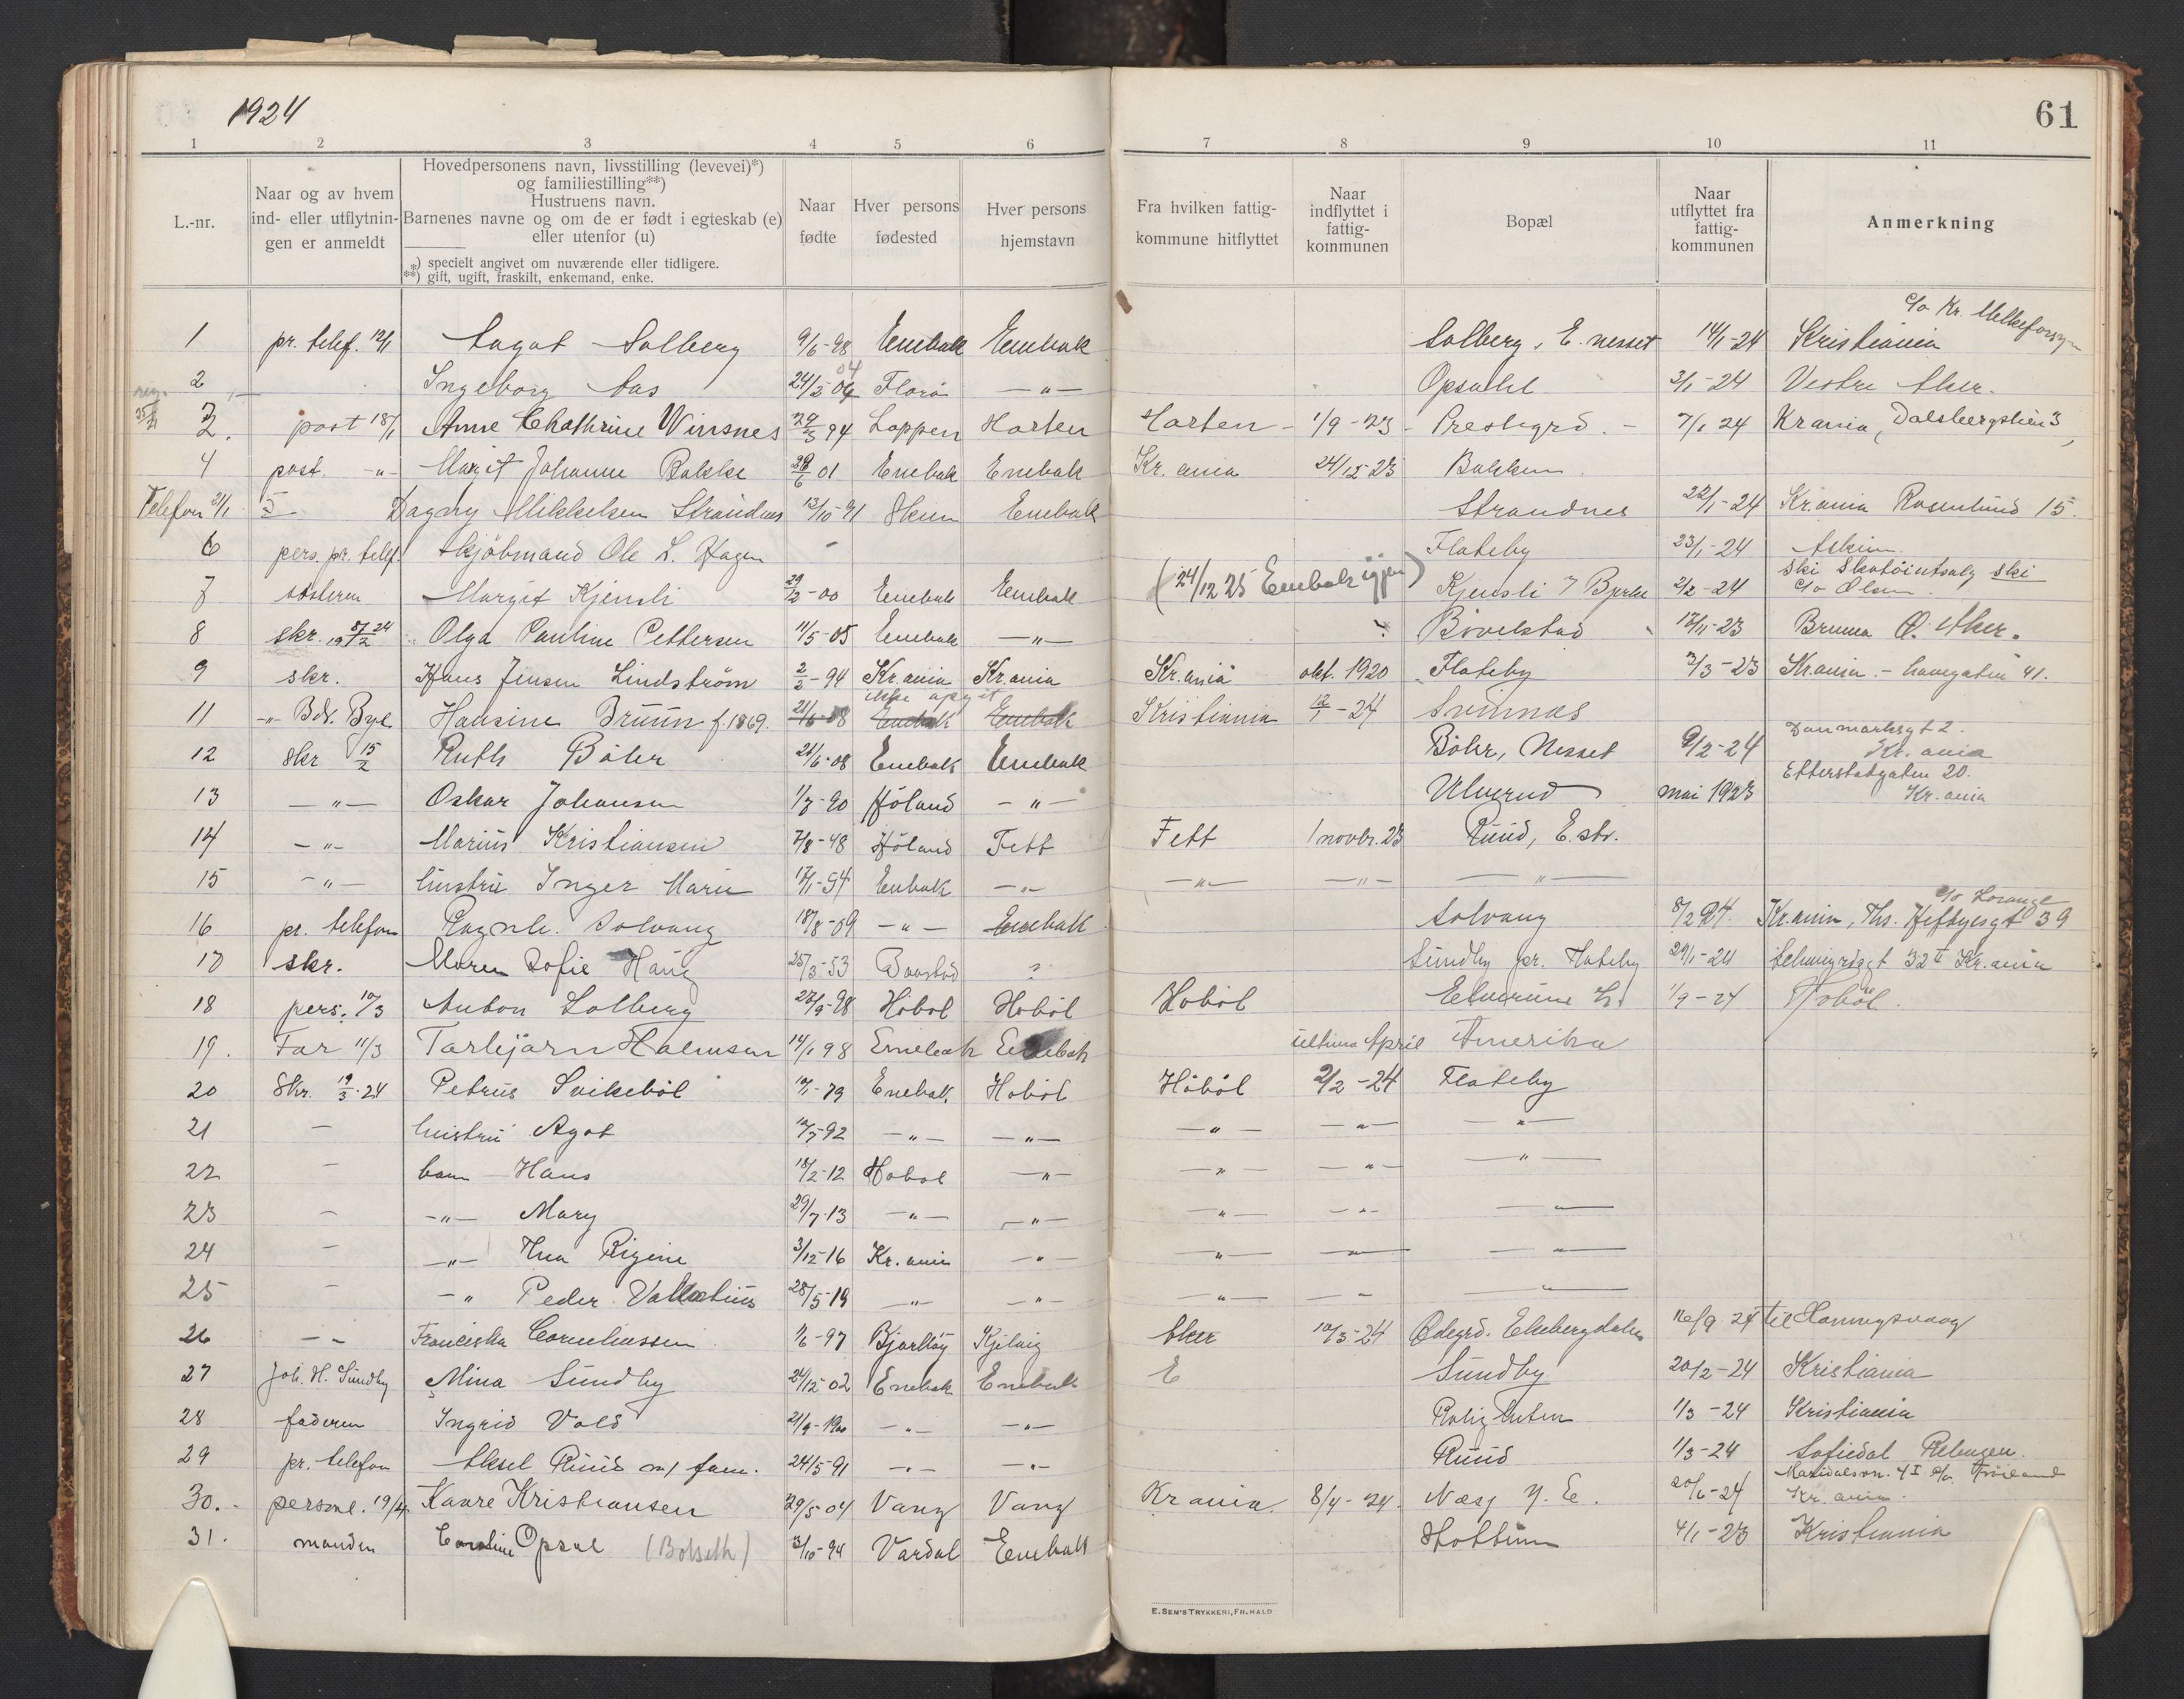 1924
61
1 2 3 4 5 6 7 8 9 10 11
L.-nr.
Naar og av hvem ind- eller utflytnin- gen er anmeldt
Hovedpersonens navn, livsstilling (levevei)*)
og familiestilling**)
Hustruens navn.
Barnenes navne og om de er født i egteskab (e)
eller utenfor (u)
*) specielt angivet om nuværende eller tidligere.
**) gift, ugift, fraskilt, enkemand, enke.
Naar fødte
Hver persons fødested
Hver persons hjemstavn
Fra hvilken fattig- kommune hitflyttet
Naar indflyttet i fattig- kommunen
Bopæl
Naar utflyttet fra fattig- kommunen
Anmerkning
c/o Kr. Melkeforsyn
1 pr. telef. 12/1 Aagot Solberg 9/6-98 Enebak Enebak Solberg, E. nesset 14/1-24 Kristiania
2 Ingeborg Aas 24/5 04 Florø -"- Opsahl 3/1-24 Vestre Aker.
3. post 18/1 Anne Chathrine Winsnes 29/3 94 Loppen Horten Horten - 1/9-23 - Prestegrd. - 7/1 24 Krania, Dalsbergstien 3
4 post. -"- Margit Johanne Bakke 28/6 01 Enebak Enebak Kr.ania 24/12-23 Bakken
Telefon 21/1 5 Dagny Mikkelsen Strandnes 13/10-91 Skien Enebak Strandnes 22/1-24 Kr.ania Rosenlund 15.
6 pers. pr. telef. Skjøbmand Ole L. Hagen - Flateby 23/1-24 Askim
7 søsteren Margit Kjensli 29/2-00 Enebak Enebak (24/12 25 Enebak igjen) Kjensli 7 Bjerke 2/2-24 Ski Skotøiutsalg Ski c/o Olsen
8 skr. 19 8/2 24 Olga Pauline Pettersen 11/5-05 Enebak -"- Bøvelstad 12/11-23 Bruma Ø. Aker.
9 skr. Hans Jensen Lindstrøm 2/2-94 Kr.ania Kr.ania Kr.ania okt. 1920 Flateby 2/3-23 Kr.ania - havegaten 41.
ikke opgit
11 -"- Bdr. Bye Hansine Bruun f. 1869. 21/6-08 Enebak Enebak Kristiania 12/1-24 Svinnas
12 Skr 15/2 Ruth Bøler 21/6-08 Enebak Enebak Bøler, Nesset 9/2-24 Danmarksgt 2. Kr.ania
13 -"- Oskar Johansen 1/7-90 Høland -"- Ulverud mai 1923 Etterstadgaten 20. Kr.ania
14 -"- Marius Kristiansen 7/8-48 Høland Fett Fett 1 novbr. 23 Ruud, E. str.
15 -"- hustru Inger Marie 17/1-54 Enbak -"- -"- -"- -"-
16 pr. telefon Ragnh. Solvang 18/8-09 -"- Enebak Solvang 8/2 24. Kr.ania, Ths. Heftyesgt 39 c/o Lorange
17 skr. Maren Sofie Haug 25/3-53 Baastad ? Sundby pr. Flateby 29/1-24 Schweigrdsgt 32 II Kr.ania
18 pers. 10/3 Anton Solberg 27/9-98 Hobøl Hobøl Hobøl 1/9-24 Hobøl
19. Far 11/3 Torbjørn Holmsen 14/1 98 Enebak Enebak ultimo April Amerika
20 Skr. 19/3-24 Petrus Svikebøl 10/1-79 Enebak Hobøl Hobøl 2/2-24 Flateby
21 - hustru Agot 10/7-92 -"- -"- -"- -"- -"-
22 - barn Hans 18/2-12 Hobøl -"- -"- -"- -"-
23 - -"- Mary 29/7-13 -"- -"- -"- -"- -"-
24 - -"- Rigine 3/12-16 Kr.ania -"- -"- -"- -"-
25 - -"- Peder 28/5-19 -"- -"- -"- - -"-
26 -- Franciska Corneliussen 1/6-97 Bjarkøy Kjelvig Aker 10/3-24 Ødegrd. Ekebergdalen 16/9 24 til Honningsvaag
27 Joh. H. Sundby Mina Sundby 24/12-02 Enebak Enebak E Sundby 20/2-24 Kristiania
28 faderen Ingrid Vold 21/9-1900 -"- -"- Roligheten 1/3-24 Kristiania
29 pr. telefon Aksel Ruud m/ fam. 24/5-91 -"- -"- Ruud 1/3-24 Sofiedal Rælingen.
30. - personl. 19/4 Kaare Kristiansen 29/5 04 Vang Vang Krania. 8/4-24. Næs Y. E. 20/6-24 Maridalsvn. 4 I c/o Frøiland Kr.ania.
31. manden Caroline Opsal (Bolseth) 3/10-94 Vardal Enebak 4/1-23 Kristiania
E. SEM'S TRYKKERI, FR.HALD